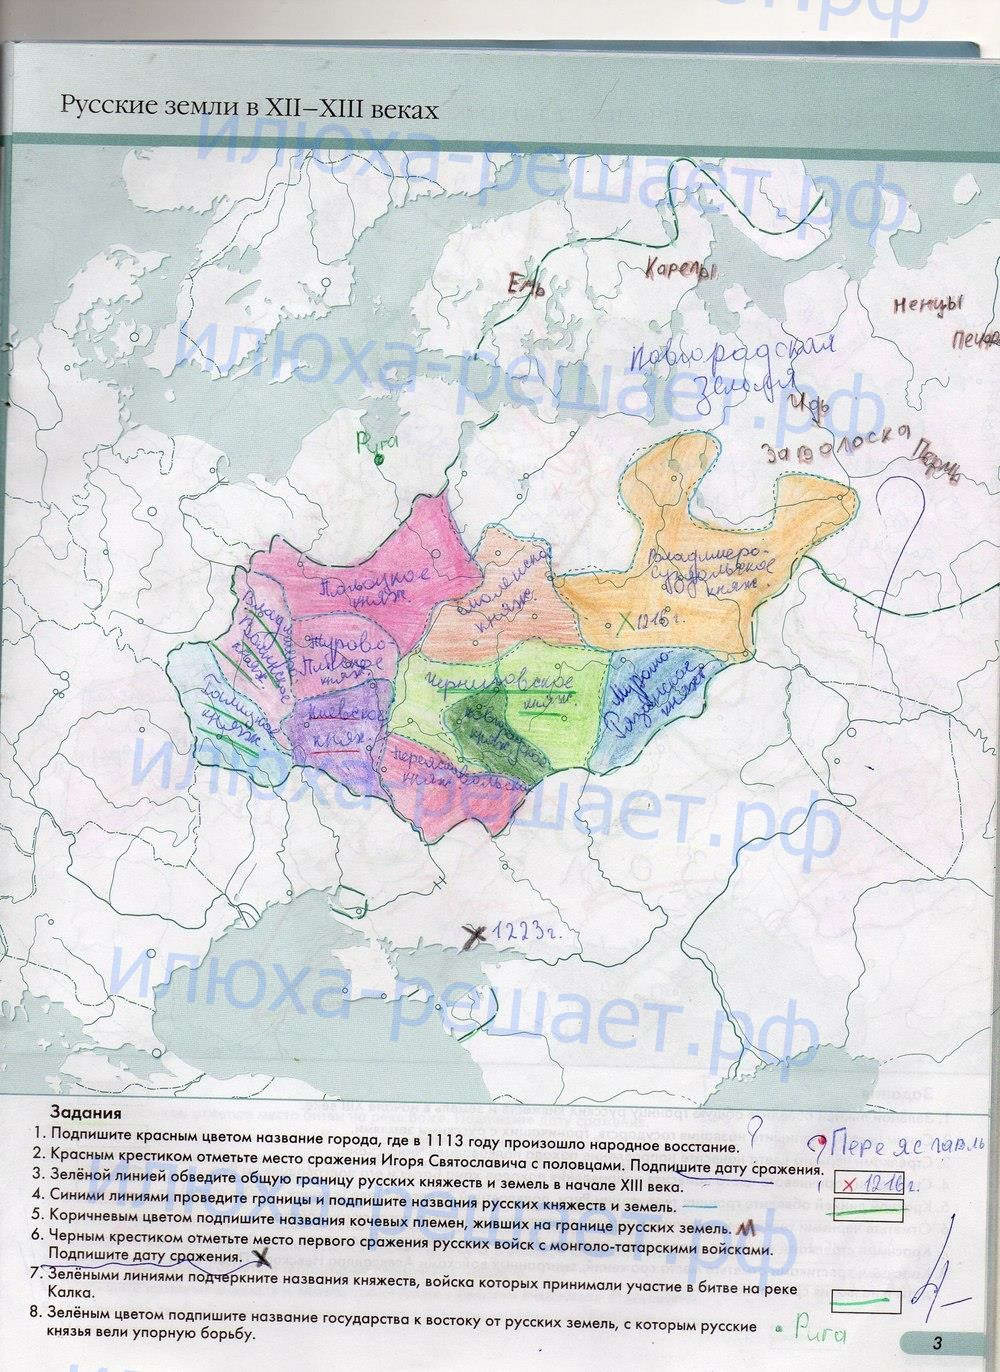 илюха-решает.рф
Русские земли в XII–XIII веках
илюха-решает.рф
Емь
Карелы
Ненцы
Печора
илюха-решает.рф
Новгородская
земля
Чудь
Заволоска
Пермь
Рига
Владимиро-
Суздальское
княж.
1216 г.
Полоцкое
княж.
Смоленское
княж.
Владимиро-
Волынское
княж.
Турово-
Пинское
княж.
Черниговское
княж.
Муромо-
Рязанское
княж.
Галицкое
княж.
Киевское
княж.
княж.
Переяславльское
княж.
илюха-решает.рф
1223г.
илюха-решает.рф
Задания
1. Подпишите красным цветом название города, где в 1113 году произошло народное восстание. ?
Переяславль
2. Красным крестиком отметьте место сражения Игоря Святославича с половцами. Подпишите дату сражения.
x 1216 г.
3. Зелёной линией обведите общую границу русских княжеств и земель в начале XIII века.
4. Синими линиями проведите границы и подпишите названия русских княжеств и земель.
5. Коричневым цветом подпишите названия кочевых племен, живших на границе русских земель.
6. Черным крестиком отметьте место первого сражения русских войск с монголо-татарскими войсками.
Подпишите дату сражения. x
7. Зелёными линиями подчеркните названия княжеств, войска которых принимали участие в битве на реке
Калка.
8. Зелёным цветом подпишите название государства к востоку от русских земель, с которым русские
князья вели упорную борьбу.
Рига
3
илюха-решает.рф
илюха-решает.рф